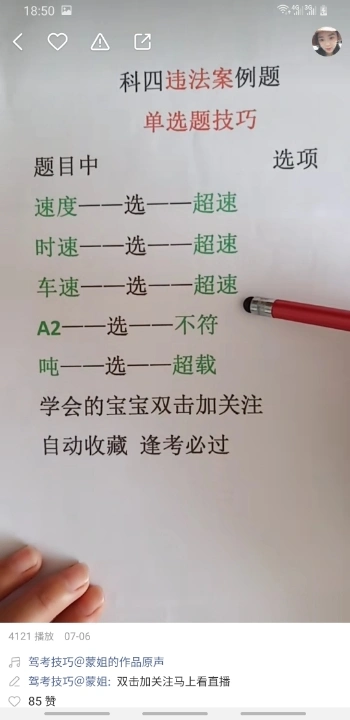 18:50
科四违法案例题
单选题技巧
题目中 选项
速度——选——超速
时速——选——超速
车速——选——超速
A2——选——不符
吨——选——超载
学会的宝宝双击加关注
自动收藏 逢考必过
4121 播放 07-06
驾考技巧@蒙姐的作品原声
驾考技巧@蒙姐: 双击加关注马上看直播
85 赞